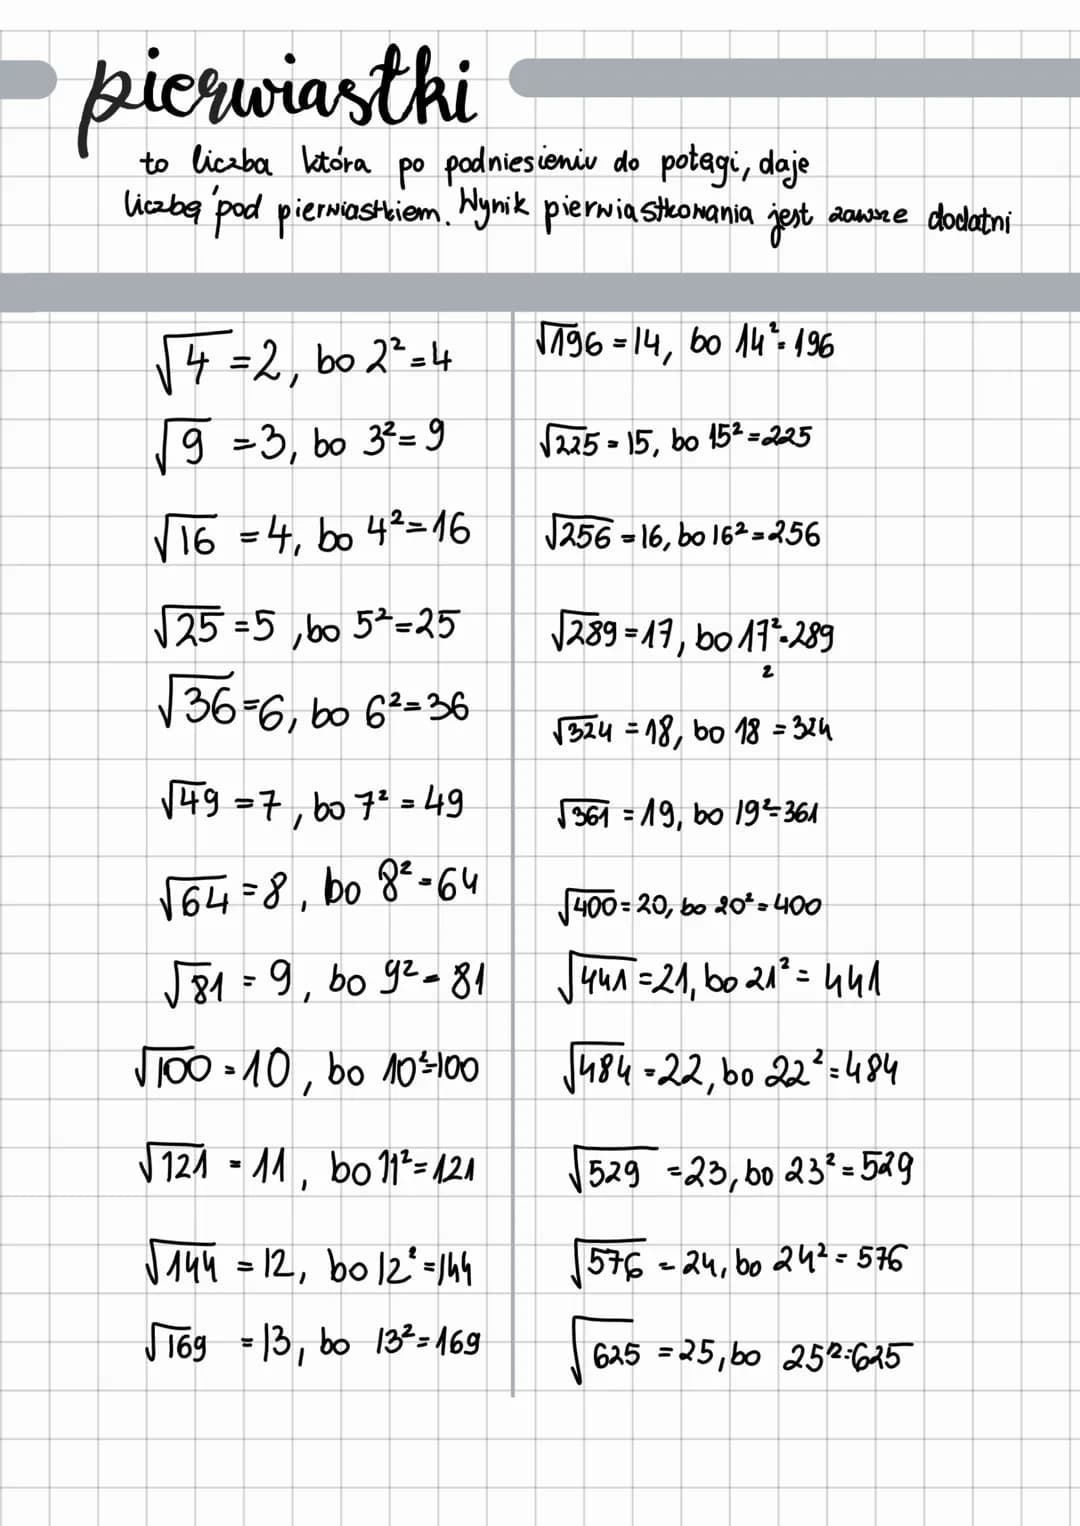 pierwiastki
to liczba która po podniesieniu do potęgi, daje
liczbę pod pierwiastkiem. Wynik pierwiastkowania jest zawsze dodatni
√4 = 2, bo 2² = 4
√9 = 3, bo 3² = 9
√16 = 4, bo 4² = 16
√25 = 5, bo 5² = 25
√36 = 6, bo 6² = 36
√49 = 7, bo 7² = 49
√64 = 8, bo 8² = 64
√81 = 9, bo 9² = 81
√100 = 10, bo 10² = 100
√121 = 11, bo 11² = 121
√144 = 12, bo 12² = 144
√169 = 13, bo 13² = 169
√196 = 14, bo 14² = 196
√225 = 15, bo 15² = 225
√256 = 16, bo 16² = 256
√289 = 17, bo 17² = 289
√324 = 18, bo 18² = 324
√361 = 19, bo 19² = 361
√400 = 20, bo 20² = 400
√441 = 21, bo 21² = 441
√484 = 22, bo 22² = 484
√529 = 23, bo 23² = 529
√576 = 24, bo 24² = 576
√625 = 25, bo 25² = 625